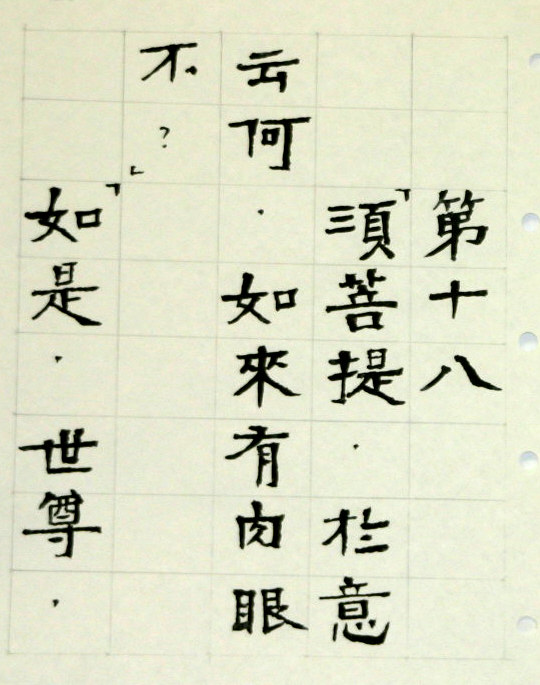 第十八
「須菩提．於意
云何．如來有肉眼
不？」
「如是．世尊．